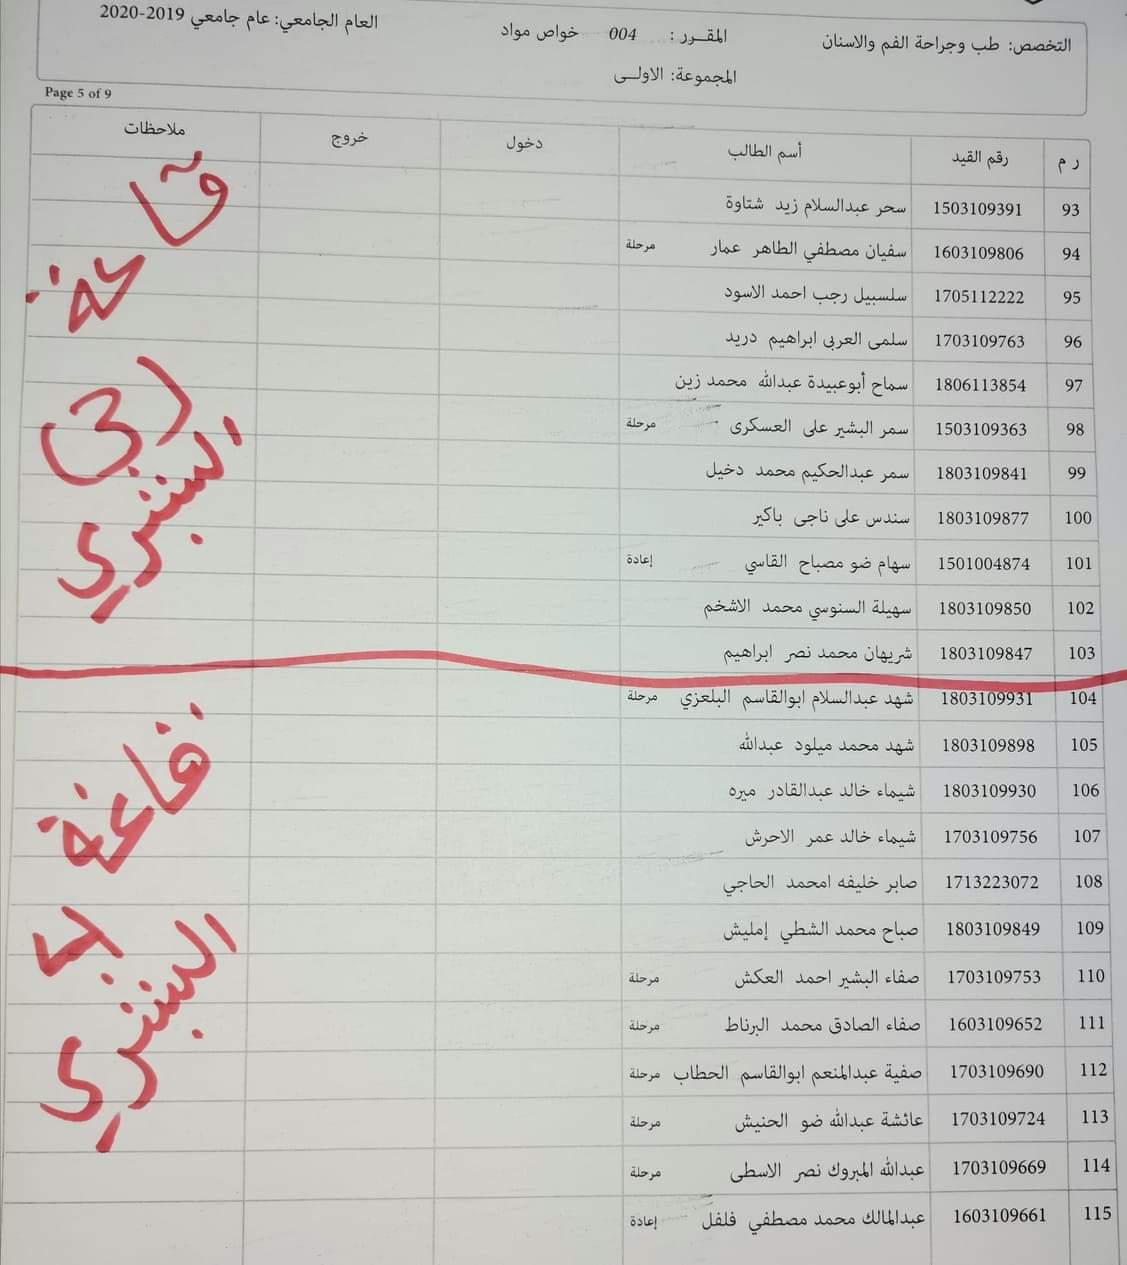 التخصص: طب وجراحة الفم والاسنان المقـــرر : 004 خواص مواد العام الجامعي: عام جامعي 2019-2020
المجموعة: الاولــى
Page 5 of 9
ر م رقم القيد أسم الطالب دخول خروج ملاحظات
93 1503109391 سحر عبدالسلام زيد شتاوة
94 1603109806 سفيان مصطفي الطاهر عمار مرحلة
95 1705112222 سلسبيل رجب احمد الاسود
96 1703109763 سلمى العربى ابراهيم دريد
97 1806113854 سماح أبوعبيدة عبدالله محمد زين
98 1503109363 سمر البشير على العسكرى مرحلة
99 1803109841 سمر عبدالحكيم محمد دخيل
100 1803109877 سندس على ناجى باكير
101 1501004874 سهام ضو مصباح القاسي إعادة
102 1803109850 سهيلة السنوسي محمد الاشخم
103 1803109847 شريهان محمد نصر ابراهيم
قاعة
البشري
104 1803109931 شهد عبدالسلام ابوالقاسم البلعزي مرحلة
105 1803109898 شهد محمد ميلود عبدالله
106 1803109930 شيماء خالد عبدالقادر ميره
107 1703109756 شيماء خالد عمر الاحرش
108 1713223072 صابر خليفه امحمد الحاجي
109 1803109849 صباح محمد الشطي إمليش
110 1703109753 صفاء البشير احمد العكش مرحلة
111 1603109652 صفاء الصادق محمد البرناط مرحلة
112 1703109690 صفية عبدالمنعم ابوالقاسم الحطاب مرحلة
113 1703109724 عائشة عبدالله ضو الحنيش مرحلة
114 1703109669 عبدالله المبروك نصر الاسطى مرحلة
115 1603109661 عبدالمالك محمد مصطفي فلفل إعادة
قاعة
البشري